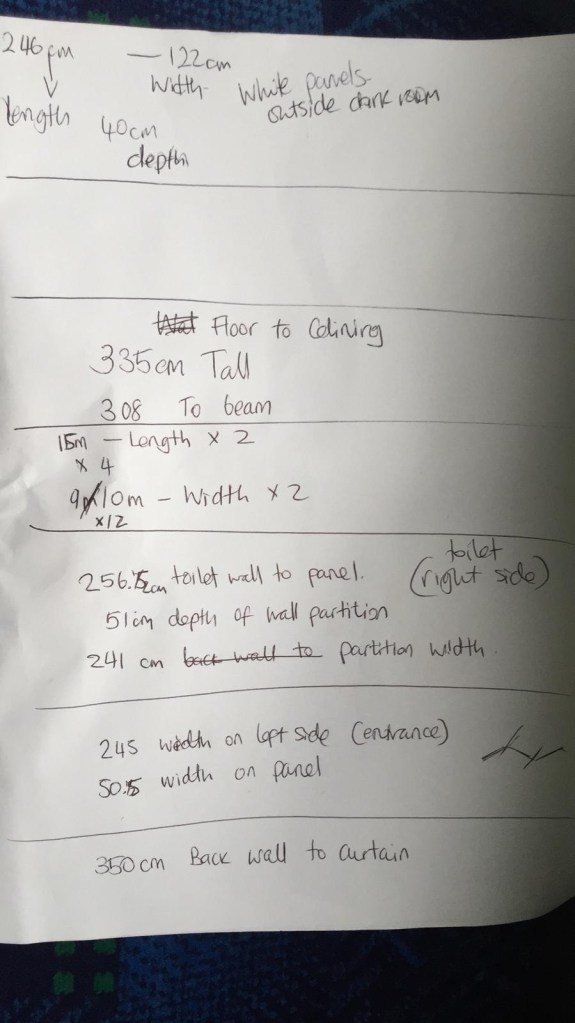 246cm — 122cm
length width
40cm
depth
White panels
outside dark room
Floor to Celining
335cm Tall
308 To beam
15m — Length x 2
x 4
10m - Width x 2
x12
256.5cm toilet wall to panel.
toilet
(right side)
51cm depth of wall partition
241 cm back wall to partition width.
245 width on left side (entrance)
50.5 width on panel
350cm Back wall to curtain